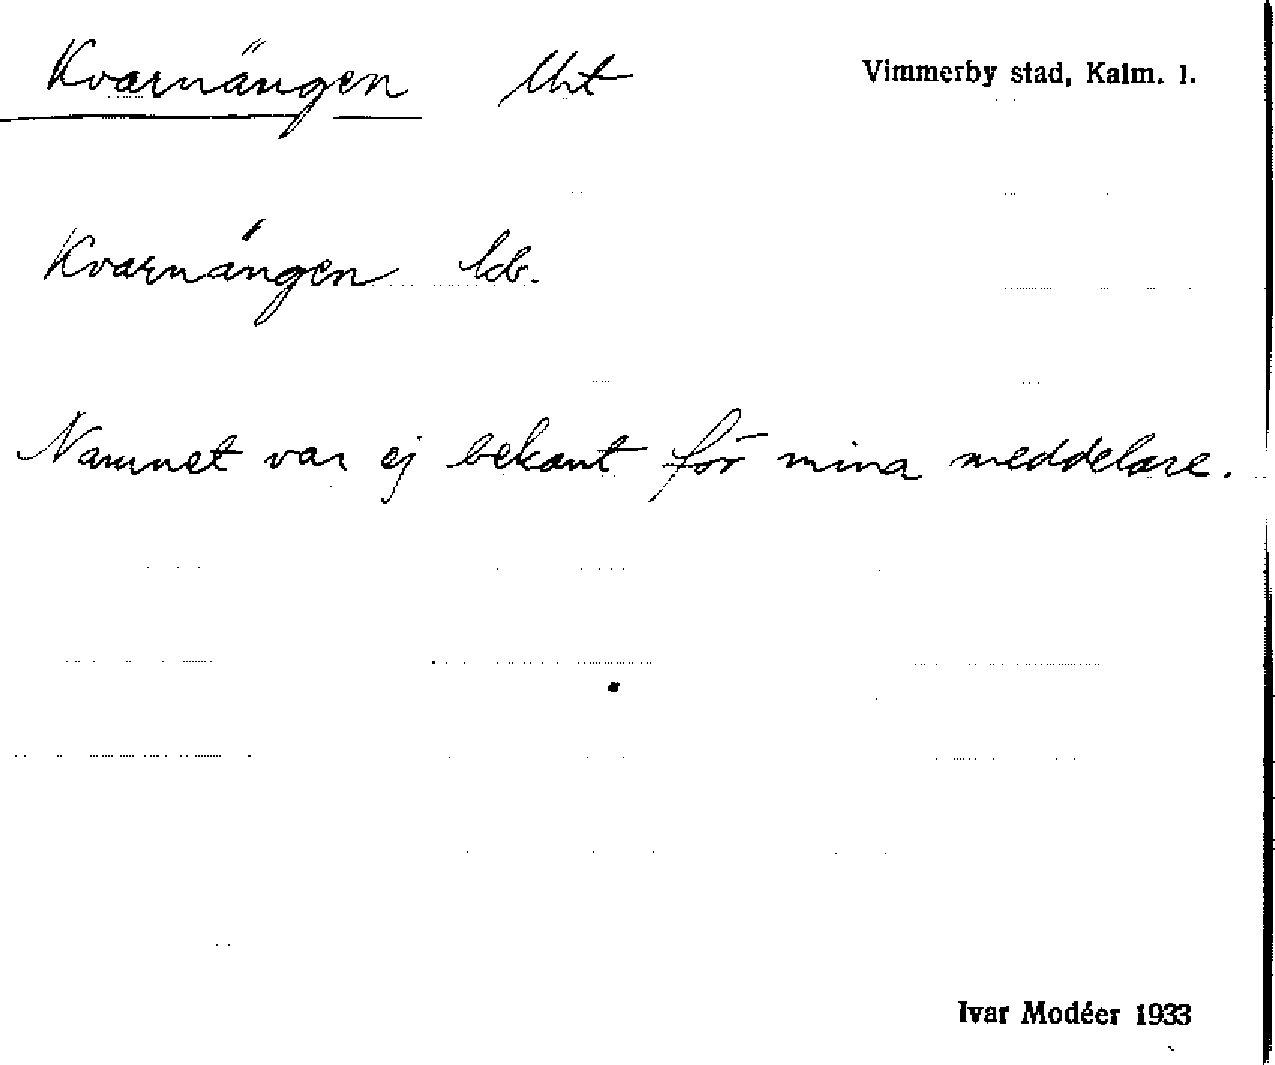 Kvarnängen Urt Vimmerby stad, Kalm. l.
Kvarnängen Jdb.
Namnet var ej bekant för mina meddelare.
Ivar Modéer 1933